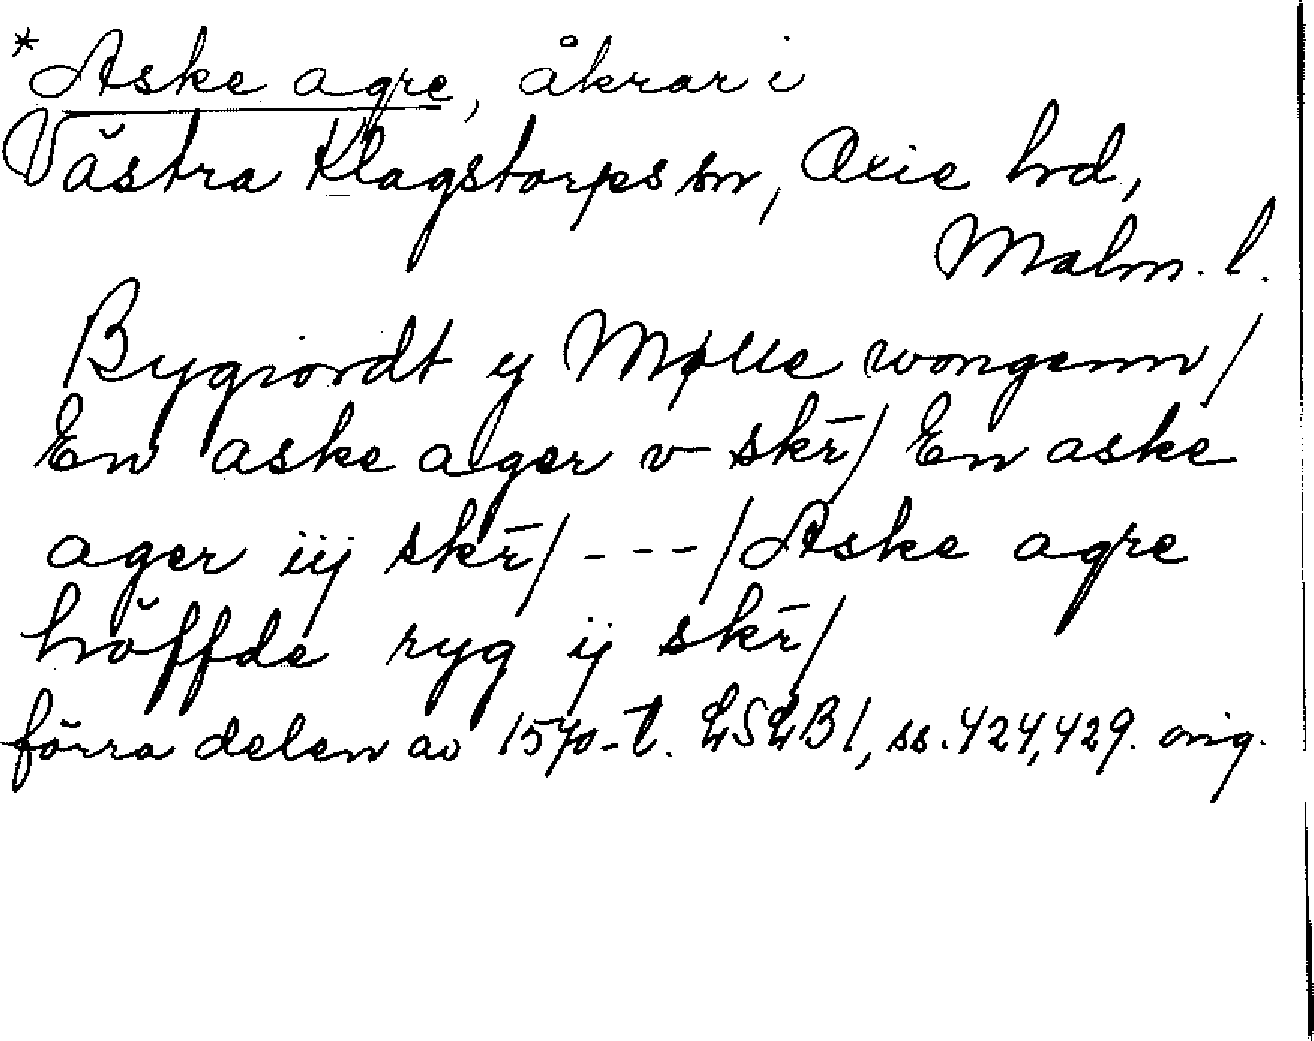 *Aske agre, åkrar i
Västra Klagstorps sn, Oxie hd,
Malm. l.
Bygiordt y Mølle wongenn/
En aske ager v skr̄/ En aske
ager iij skr̄/ - - - /Aske agre
höffde ryg ij skr̄/
förra delen av 1570-t. LSLB1, ss. 424, 429. orig.